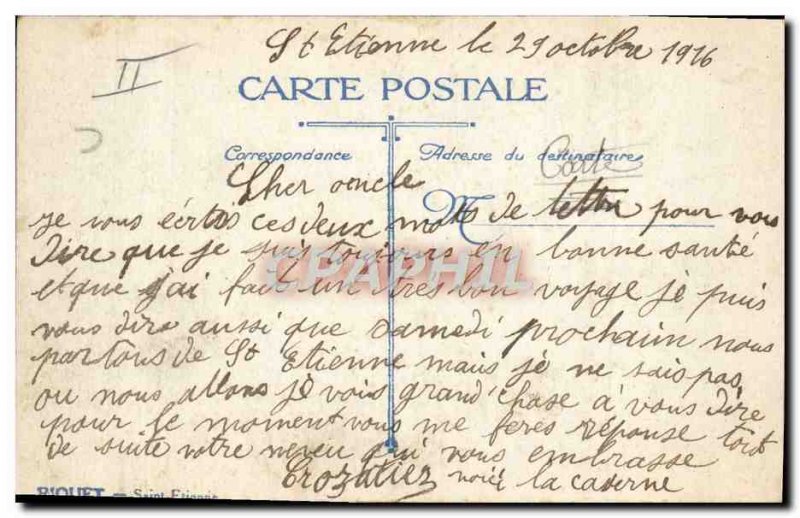 St Etienne le 29 octobre 1916
II
CARTE POSTALE
Correspondance
Adresse du destinataire
Carte
Cher oncle
M
je vous écris ces deux mots de lettre pour vous
dire que je suis toujours en bonne santé
et que j'ai fait un tres bon voyage je puis
vous dire aussi que samedi prochain nous
partons de St Etienne mais je ne sais pas
ou nous allons je vois grand chose à vous dire
pour le moment vous me feres réponse tout
de suite votre neveu qui vous embrasse
Crozatier voici la caserne
CPAPHIL
Saint-Etienne